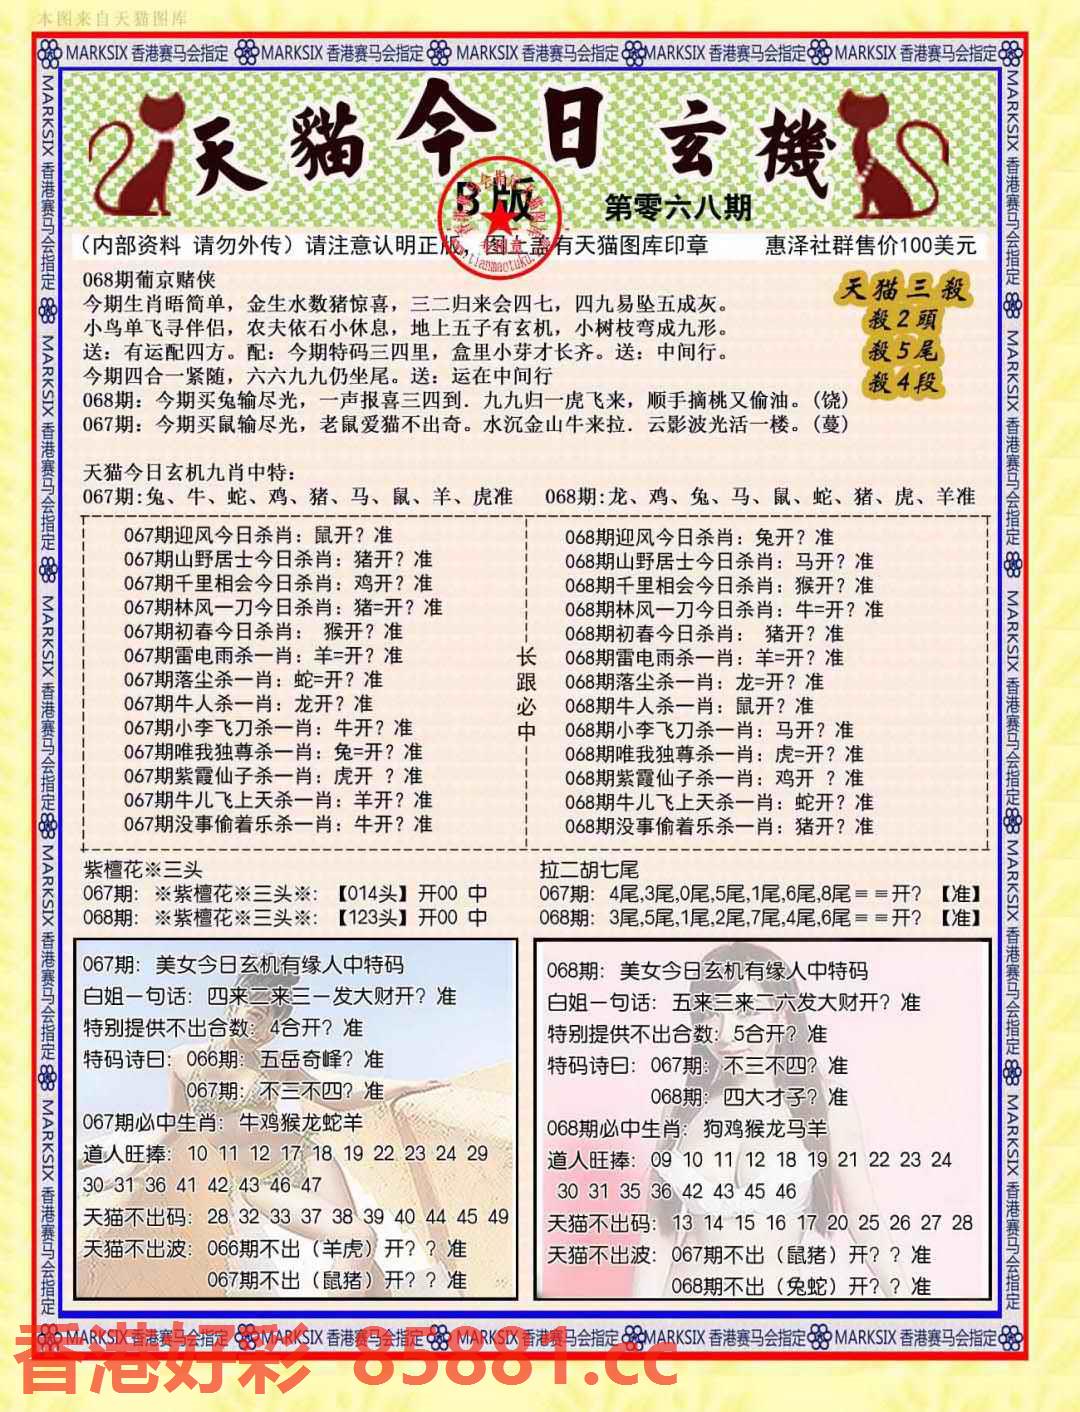 本图来自天猫图库
MARKSIX 香港赛马会指定 MARKSIX 香港赛马会指定 MARKSIX 香港赛马会指定 MARKSIX 香港赛马会指定 MARKSIX 香港赛马会指定
MARKSIX 香港赛马会指定 MARKSIX 香港赛马会指定 MARKSIX 香港赛马会指定 MARKSIX 香港赛马会指定 MARKSIX 香港赛马会指定
MARKSIX 香港赛马会指定 MARKSIX 香港赛马会指定 MARKSIX 香港赛马会指定 MARKSIX 香港赛马会指定 MARKSIX 香港赛马会指定
天貓今日玄機
B版
第零六八期
（内部资料 请勿外传）请注意认明正版，图上盖有天猫图库印章 惠泽社群售价100美元
068期葡京赌侠
今期生肖晤简单，金生水数猪惊喜，三二归来会四七，四九易坠五成灰。
小鸟单飞寻伴侣，农夫依石小休息，地上五子有玄机，小树枝弯成九形。
送：有运配四方。配：今期特码三四里，盒里小芽才长齐。送：中间行。
今期四合一紧随，六六九九仍坐尾。送：运在中间行
068期：今期买兔输尽光，一声报喜三四到．九九归一虎飞来，顺手摘桃又偷油。(饶)
067期：今期买鼠输尽光，老鼠爱猫不出奇。水沉金山牛来拉．云影波光活一楼。(蔓)
天猫三殺
殺2頭
殺5尾
殺4段
天猫今日玄机九肖中特：
067期:兔、牛、蛇、鸡、猪、马、鼠、羊、虎准 068期:龙、鸡、兔、马、鼠、蛇、猪、虎、羊准
067期迎风今日杀肖：鼠开？准
067期山野居士今日杀肖：猪开？准
067期千里相会今日杀肖：鸡开？准
067期林风一刀今日杀肖：猪=开？准
067期初春今日杀肖： 猴开？准
067期雷电雨杀一肖：羊=开？准
067期落尘杀一肖：蛇=开？准
067期牛人杀一肖：龙开？准
067期小李飞刀杀一肖：牛开？准
067期唯我独尊杀一肖：兔=开？准
067期紫霞仙子杀一肖：虎开 ？准
067期牛儿飞上天杀一肖：羊开？准
067期没事偷着乐杀一肖：牛开？准
长跟必中
068期迎风今日杀肖：兔开？准
068期山野居士今日杀肖：马开？准
068期千里相会今日杀肖：猴开？准
068期林风一刀今日杀肖：牛=开？准
068期初春今日杀肖： 猪开？准
068期雷电雨杀一肖：羊=开？准
068期落尘杀一肖：龙=开？准
068期牛人杀一肖：鼠开？准
068期小李飞刀杀一肖：马开？准
068期唯我独尊杀一肖：虎=开？准
068期紫霞仙子杀一肖：鸡开 ？准
068期牛儿飞上天杀一肖：蛇开？准
068期没事偷着乐杀一肖：猪开？准
紫檀花※三头
067期： ※紫檀花※三头※: 【014头】开00 中
068期： ※紫檀花※三头※: 【123头】开00 中
拉二胡七尾
067期： 4尾,3尾,0尾,5尾,1尾,6尾,8尾≡≡开？ 【准】
068期： 3尾,5尾,1尾,2尾,7尾,4尾,6尾≡≡开？ 【准】
067期：美女今日玄机有缘人中特码
白姐一句话：四来二来三一发大财开？准
特别提供不出合数：4合开？准
特码诗曰：066期：五岳奇峰？准
067期：不三不四？准
067期必中生肖：牛鸡猴龙蛇羊
道人旺捧：10 11 12 17 18 19 22 23 24 29
30 31 36 41 42 43 46 47
天猫不出码：28 32 33 37 38 39 40 44 45 49
天猫不出波：066期不出（羊虎）开？？准
067期不出（鼠猪）开？？准
068期：美女今日玄机有缘人中特码
白姐一句话：五来三来二六发大财开？准
特别提供不出合数：5合开？准
特码诗曰：067期：不三不四？准
068期：四大才子？准
068期必中生肖：狗鸡猴龙马羊
道人旺捧：09 10 11 12 18 19 21 22 23 24
30 31 35 36 42 43 45 46
天猫不出码：13 14 15 16 17 20 25 26 27 28
天猫不出波：067期不出（鼠猪）开？？准
068期不出（兔蛇）开？？准
MARKSIX 香港赛马会指定 MARKSIX 香港赛马会指定 MARKSIX 香港赛马会指定 MARKSIX 香港赛马会指定 MARKSIX 香港赛马会指定
香港好彩 85881.cc